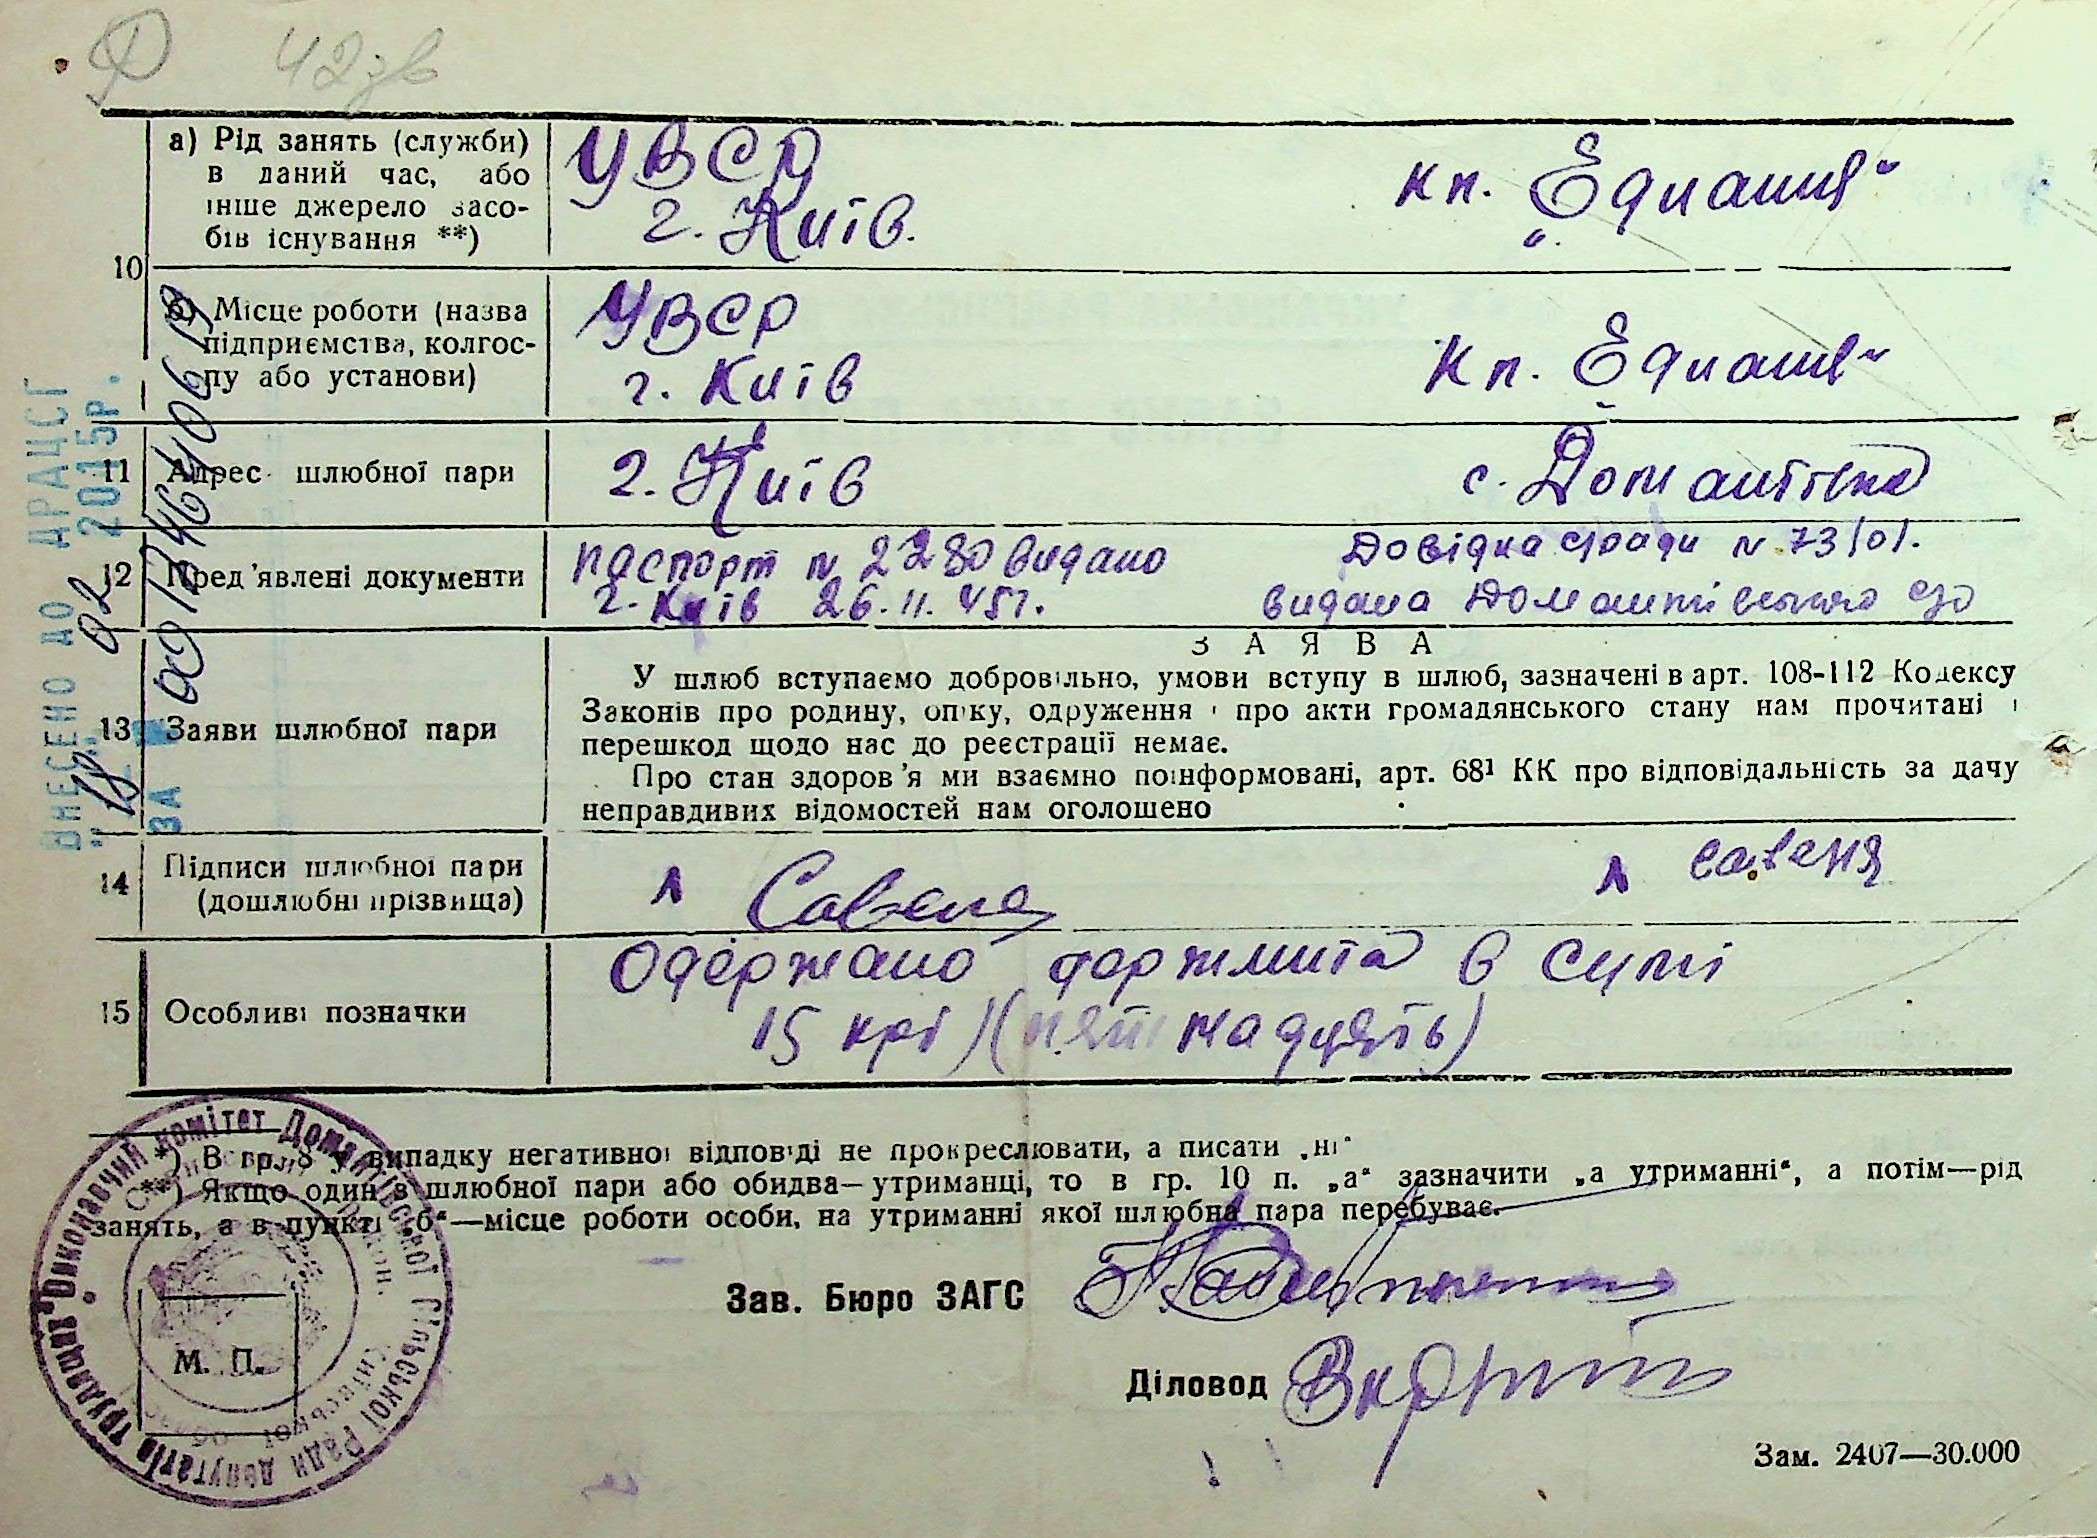 42зв
а) Рід занять (служби)
в даний час, або
інше джерело засо-
бів існування **)
УВСР
г. Київ.
кп. „Еднання"
10
б) Місце роботи (назва
підприємства, колгос-
пу або установи)
УВСР
г. Київ
кп. „Еднання"
11 Адрес шлюбної пари
г. Київ
с. Домантівка
12 Пред'явлені документи
паспорт № 2280 видано
г. Київ 26.II.45г.
Довідка с/ради № 73/01.
видана Домантівською с/р
ЗАЯВА
13 Заяви шлюбної пари
У шлюб вступаємо добровільно, умови вступу в шлюб, зазначені в арт. 108-112 Кодексу
Законів про родину, опіку, одруження і про акти громадянського стану нам прочитані і
перешкод щодо нас до реєстрації немає.
Про стан здоров'я ми взаємно поінформовані, арт. 68¹ КК про відповідальність за дачу
неправдивих відомостей нам оголошено
14 Підписи шлюбної пари
(дошлюбні прізвища)
Савеня
Савеня
15 Особливі позначки
Одержано держмита в сумі
15 крб (п'ятнадцять)
*) В гр. 8 у випадку негативної відповіді не прокреслювати, а писати „ні"
**) Якщо один з шлюбної пари або обидва—утриманці, то в гр. 10 п. „а" зазначити „а утриманні", а потім—рід
занять, а в пункті „б"—місце роботи особи, на утриманні якої шлюбна пара перебуває.
Зав. Бюро ЗАГС
М. П.
Діловод
Зам. 2407—30.000
ВНЕСЕНО ДО ДРАЦСГ
"18" 02 2015р.
ЗА №
Виконавчий комітет Домантівської Сільської Ради депутатів трудящих